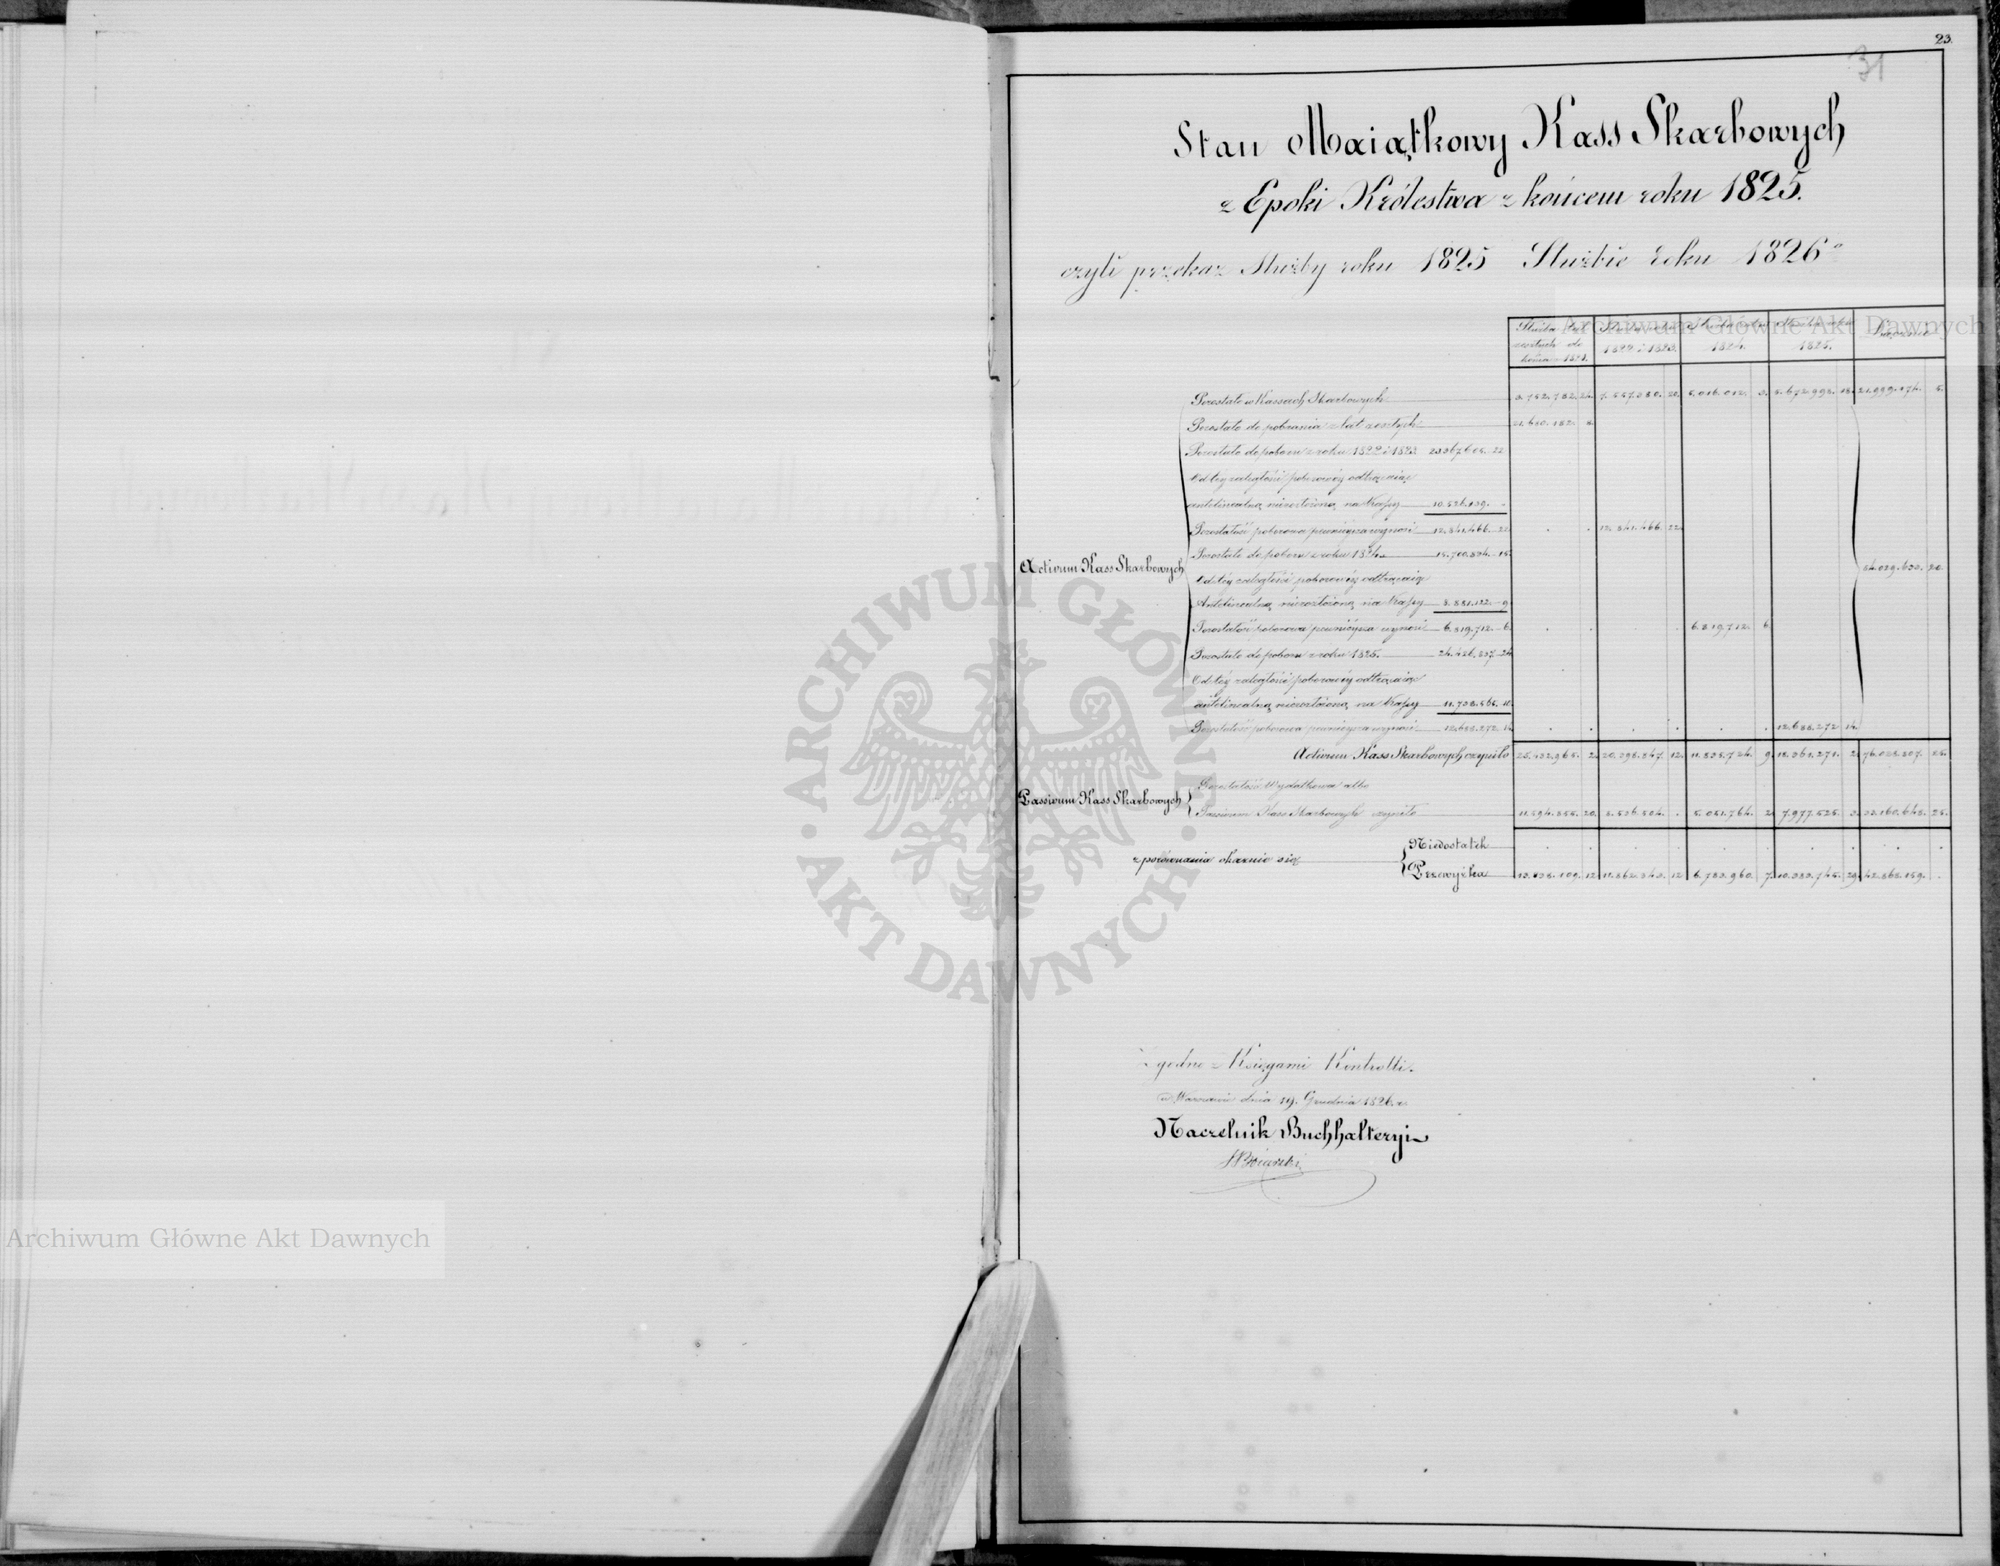 23.
31
Stan Maiątkowy Kass Skarbowych
z Epoki Królestwa z końcem roku 1825.
czyli przekaz Służby roku 1825 Służbie roku 1826º
Służba lat zeszłych do końca r. 1821. Służba roku 1822 i 1823. Służba roku 1824. Służba roku 1825. Łącznie
Pozostało w Kassach Skarbowych 3.752.782. 24. 7.557.380. 20. 5.016.012. 3. 5.672.998. 18. 21.999.174. 5.
Pozostało do pobrania z lat zeszłych 21.680.182. 8.
Pozostało do poboru z roku 1822 i 1823 23.367.605. 22
Od tey zaległości poborowéy odtrącaiąc
antelinealną nierozłożoną na Kassy 10.526.139. -
Pozostałość poborowa pewnieysza wynosi 12.841.466. 22. 12.841.466. 22.
Pozostało do poboru z roku 1824. 15.700.834. 15.
Od tey zaległości poborowéy odtrącaiąc
Antelinealną nierozłożoną na Kassy 8.881.122. 9.
Activum Kass Skarbowych 54.029.630. 20.
Pozostałość poborowa pewnieysza wynosi 6.819.712. 6. 6.819.712. 6.
Pozostało do poboru z roku 1825. 24.426.837. 24.
Od tey zaległości poborowéy odtrącaiąc
antelinealną nierozłożoną na Kassy 11.738.565. 10.
Pozostałość poborowa pewnieysza wynosi 12.688.272. 14. 12.688.272. 14.
Activum Kass Skarbowych czyniło 25.432.965. 2. 20.398.847. 12. 11.835.724. 9. 18.361.271. 2. 76.028.807. 25.
Passivum Kass Skarbowych
Pozostałość Wydatkowa albo
Passivum Kass Skarbowych czyniło 11.594.855. 20. 8.536.504. - 5.051.764. 2. 7.977.525. 3. 33.160.648. 25.
z porównania okazuie się
Niedostatek
Przewyżka 13.838.109. 12. 11.862.343. 12. 6.783.960. 7. 10.383.745. 29. 42.868.159. -
Zgodno z Księgami Kontrolli.
w Warszawie dnia 19. Grudnia 1826. r.
Naczelnik Buchhalteryi
Archiwum Główne Akt Dawnych
Archiwum Główne Akt Dawnych
ARCHIWUM GŁÓWNE · AKT DAWNYCH ·